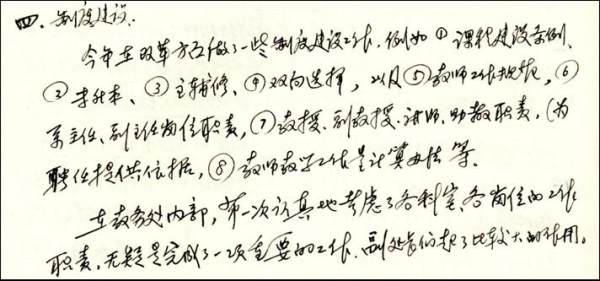 四、制度建设.
今年在改革方面做了一些制度建设工作,例如①课程建设条例、
②专升本、③主辅修、④双向选择,以及⑤教师工作规范,⑥
系主任、副主任岗位职责,⑦教授、副教授、讲师、助教职责,(为
聘任提供依据,⑧教师教学工作量计算办法等.
在教务处内部,第一次认真地考虑了各科室、各岗位的工作
职责,无疑是完成了一项重要的工作、副处长们起了比较大的作用。